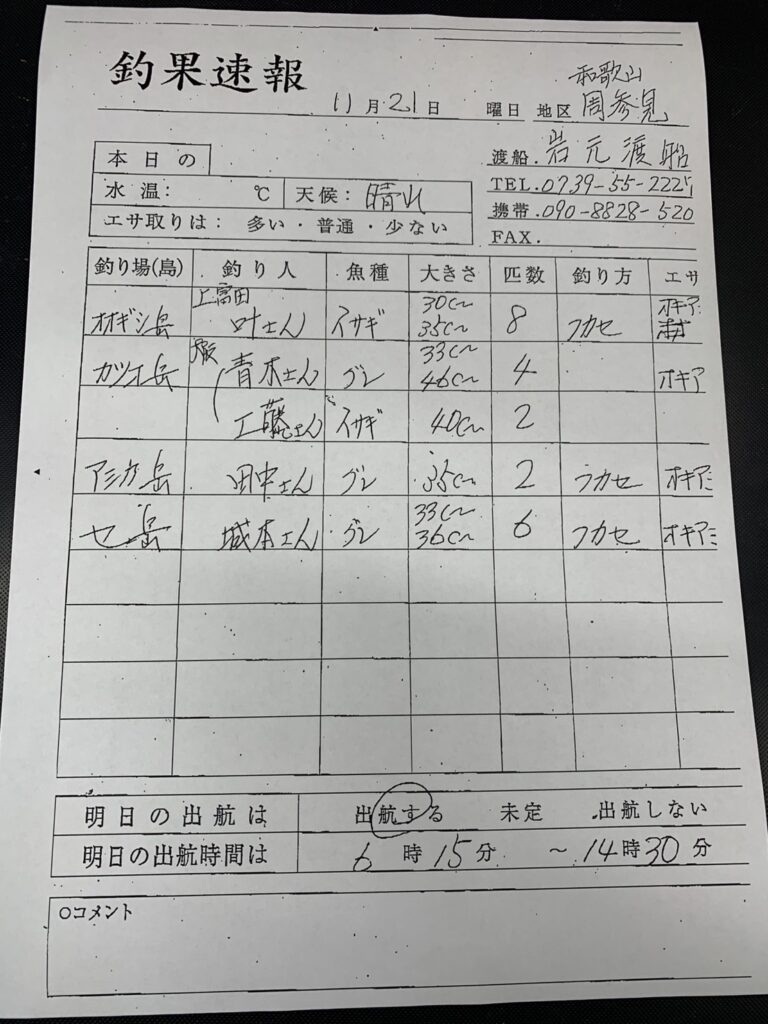 釣果速報
11月21日 曜日 地区 和歌山 周参見
渡船. 岩元渡船
TEL. 0739-55-222
携帯. 090-8828-520
FAX.
本日の
水温: ℃ 天候: 晴れ
エサ取りは: 多い・普通・少ない
釣り場(島) 釣り人 魚種 大きさ 匹数 釣り方 エサ
オオギシ岳 上富田 叶さん イサギ 30㎝〜35㎝ 8 フカセ オキア
カツオ岳 大阪 青木さん グレ 33㎝〜46㎝ 4 オキア
工藤さん イサギ 40㎝ 2
アシカ岳 田中さん グレ 35㎝ 2 フカセ オキアミ
セ岳 城本さん グレ 33㎝〜36㎝ 6 フカセ オキアミ
明日の出航は 出航する 未定 出航しない
明日の出航時間は 6時15分 〜14時30分
○コメント